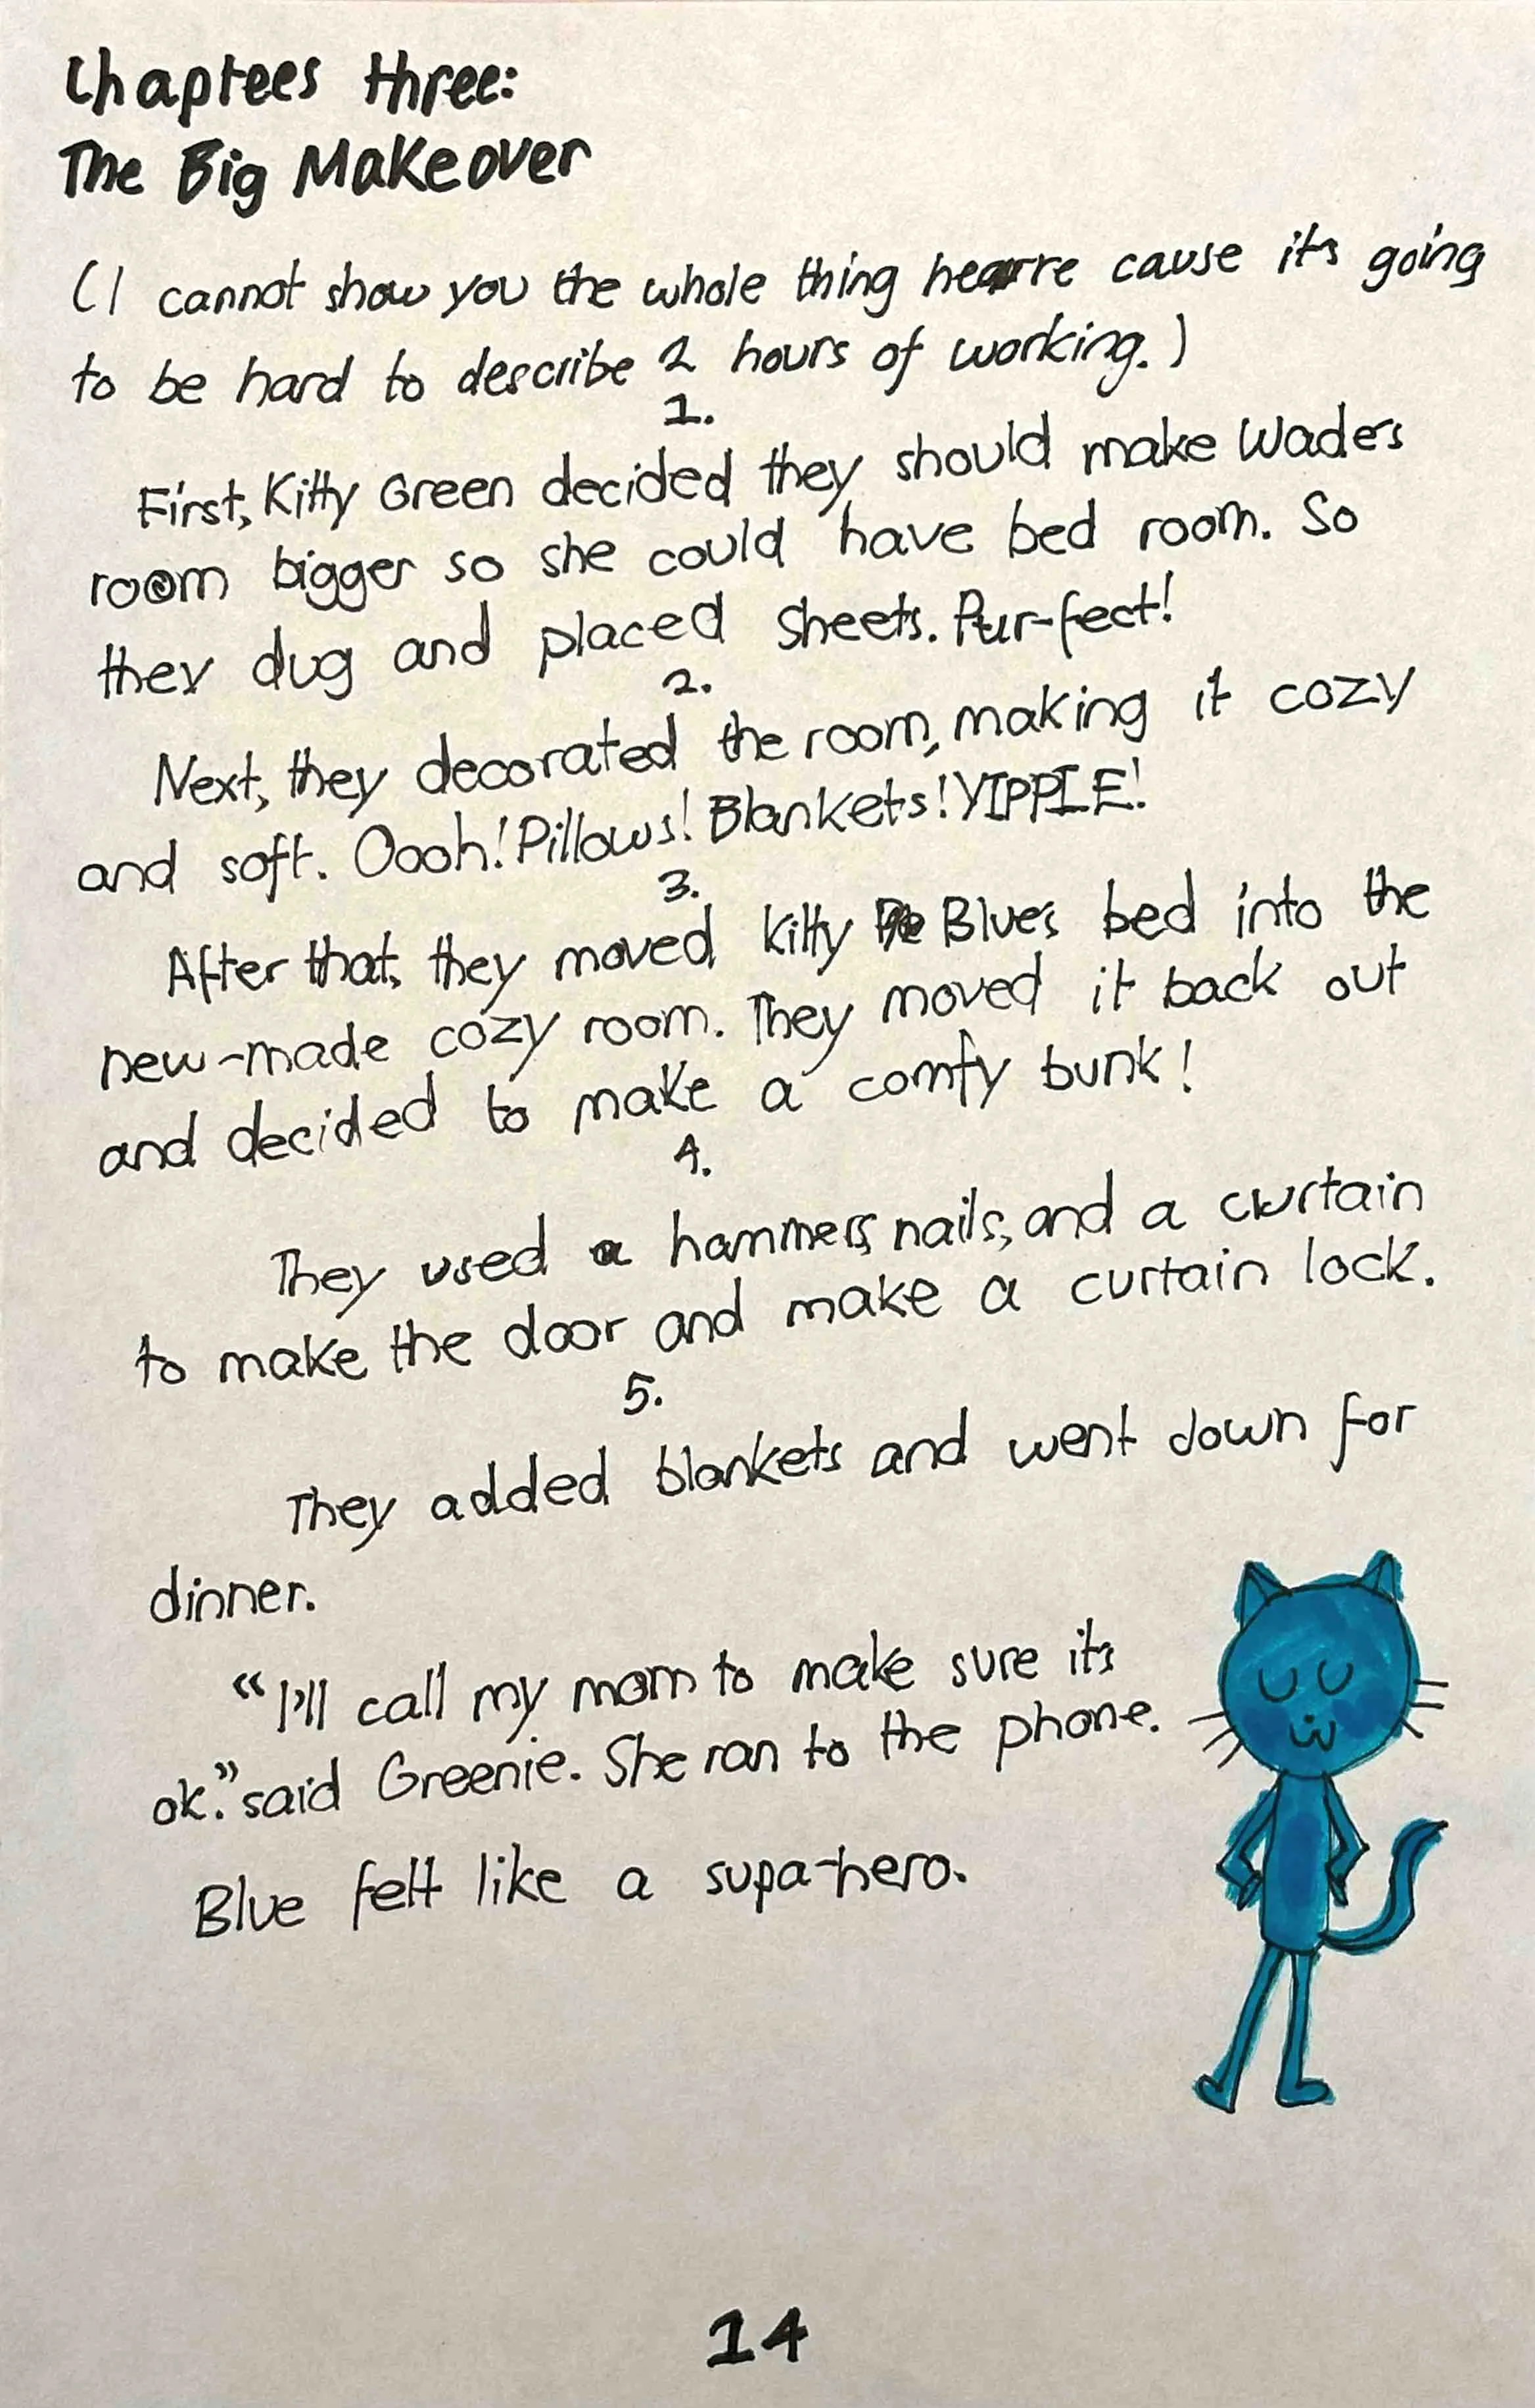 Chaptees three:
The Big Makeover
(I cannot show you the whole thing hearre cause it's going
to be hard to describe 2 hours of working.)
1.
First, Kitty Green decided they should make Wade's
room bigger so she could have bed room. So
they dug and placed sheets. Pur-fect!
2.
Next, they decorated the room, making it cozy
and soft. Oooh! Pillows! Blankets! YIPPIE!
3.
After that, they moved Kitty Blue's bed into the
new-made cozy room. They moved it back out
and decided to make a comfy bunk!
4.
They used a hammers, nails, and a curtain
to make the door and make a curtain lock.
5.
They added blankets and went down for
dinner.
"I'll call my mom to make sure it's
ok." said Greenie. She ran to the phone.
Blue felt like a supa-hero.
14